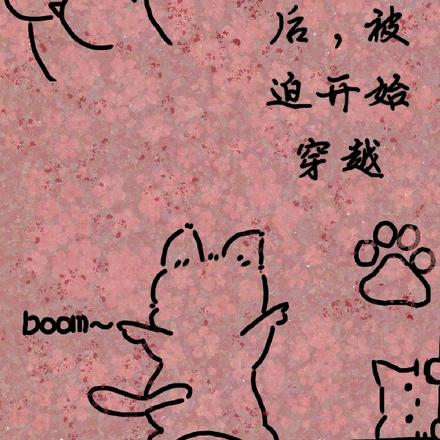 后，被
迫开始
穿越
boom~